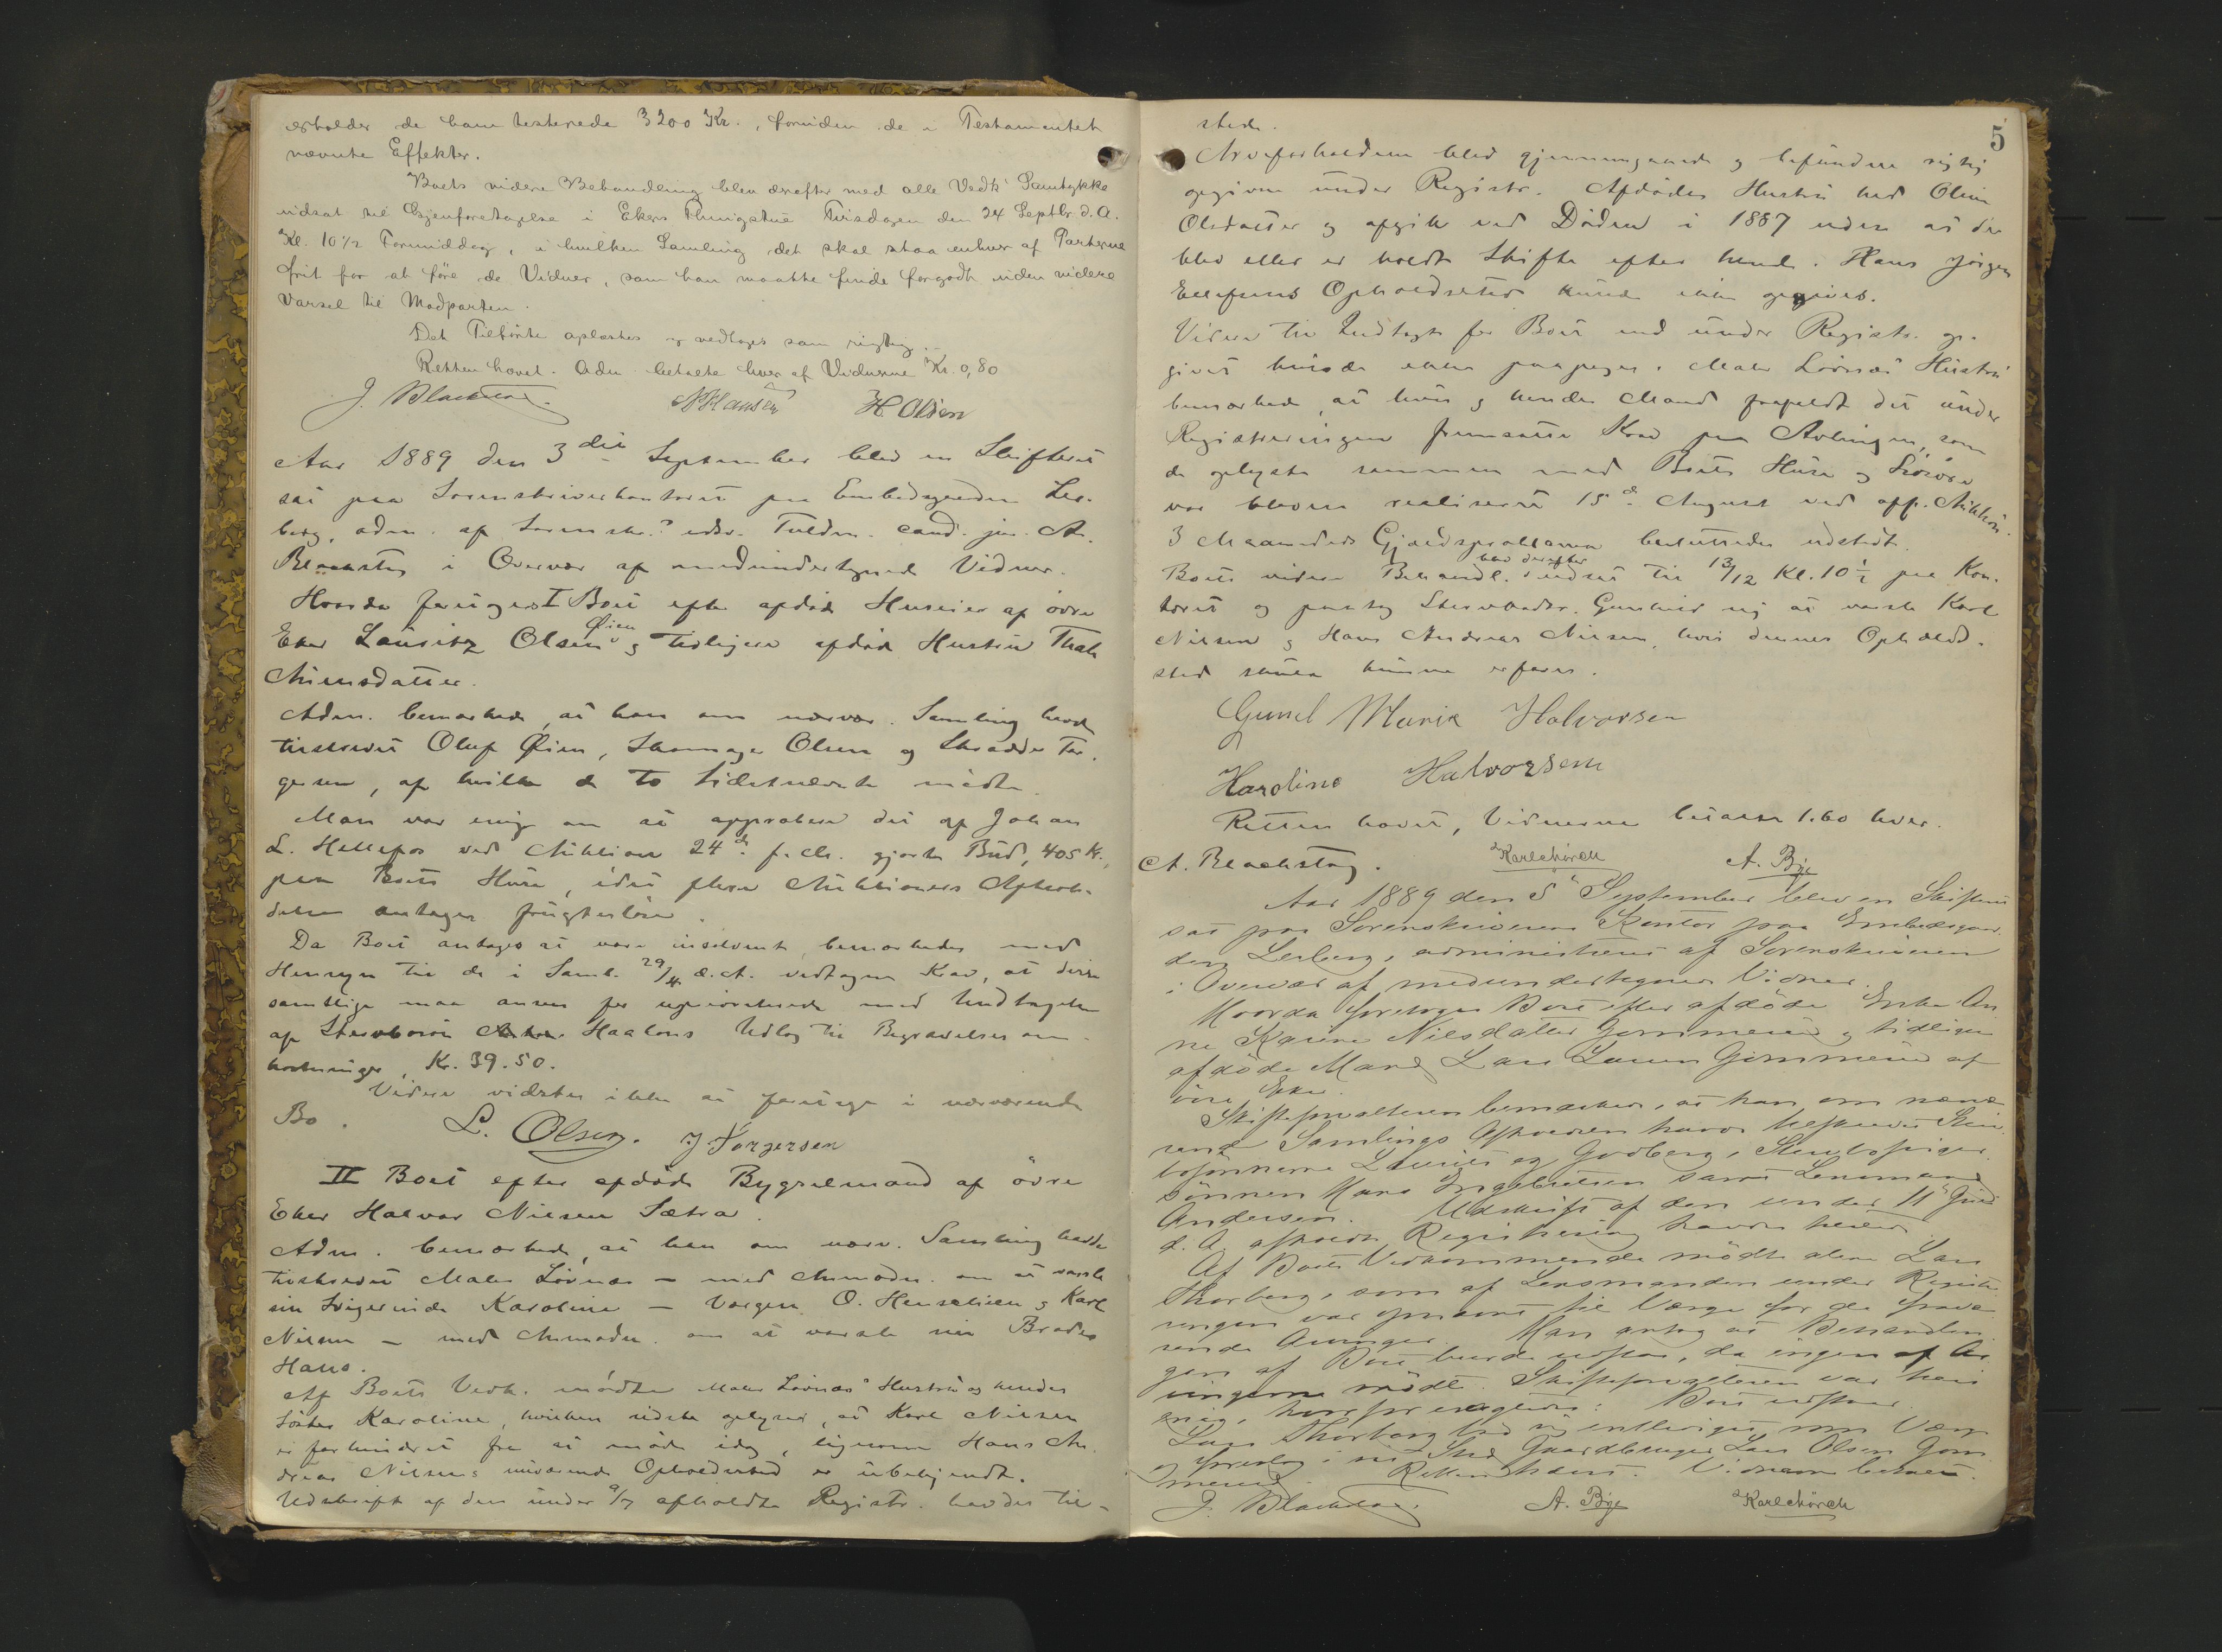 erholder de ham testerede 3200 Kr., foruden de i Testamentet
nævnte Effekter.
Boets videre Behandling blev derefter med alle Vedk' Samtykke
udsat til Gjenforetagelse i Ekers Thingstue Tirsdagen den 24 Septbr. d. A.
Kl. 10 1/2 Formiddag, i hvilken Samling det skal staa enhver af Parterne
frit for at føre de Vidner, som han maatte finde forgodt uden videre
Varsel til Modparten.
Det Tilførte oplæstes og vedtoges som rigtig.
Retten hævet. Adm. betalte hver af Vidnerne Kr. 0,80
J. Blackstad. N Hansen H Olsen
Aar 1889 den 3die September blev en Skifteret
sat paa Sorenskriverkontoret paa Embedsgaarden Ler-
berg, adm. af Sorenskr.s edsv. Fuldm. cand. jur. A.
Blackstad i Overvær af medundertegnede Vidner.
Hvorda foretoges I Boet efter afdøde Huseier af øvre
Eker Lauritz Olsen Øien og tidligere afdøde Hustru
datter.
Adm. bemærkede, at han om nærvær. Samling havde
tilskrevet Oluf Øien, Skomager Olsen og Skrædder Tor-
gersen, af hvilke de to sidstnævnte mødte.
Man var enig om at approbere det af Johan
L. Hellefos ved Auktion 24de f. M. gjorte Bud, 405 Kr.,
paa Boets Huse, idet flere Auktioners Afhol-
delse antages frugtesløse.
Da Boet antages at være insolvent, bemærkedes med
Hensyn til de i Saml. 29/4 d. A. vedtagne Krav, at disse
samtlige maa ansees for uprioriterede med Undtagelse
af Haakons Udlæg til Begravelsesom-
kostninger, Kr. 39.50.
Videre vidstes ikke at foretage i nærværende
Bo. L. Olsen. J Torgersen
II Boet efter afdøde Bygselmand af øvre
Eker Halvor Nielsen Sætra.
Adm. bemærkede, at han om nærv. Samling havde
tilskrevet Maler Lövnæs – med Anmodn. om at varsle
sin Svigerinde Karoline – Vergen O. Henschien og Karl
Nilsen – med Anmodn. om at varsle sin Broder
Hans.
Af Boets Vedk. mødte Maler Lövnæs' Hustru og hendes
Søster Karoline, hvilken sidste oplyser, at Karl Nilsen
er forhindret fra at møde idag, ligesom Hans An-
dreas Nilsens nuværende Opholdssted er ubekjendt.
Udskrift af den under 9/7 afholdte Registr. havdes til-
5
stede.
Arveforholdene blev gjennemgaaede og befundne rigtig
opgivne under Registr. Afdødes Hustru hed Olea
Olsdatter og afgik ved Døden i 1887 uden at der
blev eller er holdt Skifte efter hende. Hans Jörgen
Ellefsens Opholdssted kunde ikke opgives.
Videre til Indtægt for Boet end under Registr. op-
givet havdes ikke paapeges. Maler Lövnæs' Hustru
bemærkede, at hun og hendes Mand frafaldt det under
Registreringen fremsatte Krav paa Avlingen, som
de oplyste sammen med Boets Huse og Løsøre
var bleven realiseret 15de August ved off. Auktion.
3 Maaneders Gjældsproklama besluttedes udstedt.
Boets videre Behandl. blev derefter udsat til 13/12 Kl. 10 1/2 paa Kon-
toret og paatog Stervbodtr. Gunhild sig at varsle Karl
Nilsen og Hans Andreas Nilsen, hvis dennes Opholds-
sted skulde kunne erfares.
Gunil Maria Halvorsen
Karoline Halvorsen
Retten hævet, Vidnerne betaltes 1.60 hver.
A. Blackstad. Karl Mörch A. Bye
Aar 1889 den 5te September blev en Skifteret
sat paa Sorenskriverens Kontor paa Embedsgaar-
den Lerberg, administreret af Sorenskriveren
i Overvær af medundertegnede Vidner.
Hvorda foretoges Boet efter afdøde Enke An-
ne Karine Nilsdatter og tidligere
afdøde Mand Lars Larsen af
øvre Eker.
Skifteforvalteren bemærkede, at han om nærvæ-
rende Samlings Afholdelse havde tilskrevet Sterv-
bosønnerne Laurits og,
sønnen Hans Engebretsen samt Lensmand
Andersen. Udskrift af den under 11te Juni
d. A. afholdte Registrering havdes tilstede.
Af Boets Vedkommende mødte alene Lars
Thorberg, som af Lensmanden under Registre-
ringen var opnævnt til Værge for de fravæ-
rende Arvinger. Man antog at Behandlin-
gen af Boet burde udstaa, da ingen af Ar-
vingerne mødte. Skifteforvalteren var heri
enig, hvorfor : Boet udstaar.
Lars Thorberg bad sig entlediget som Værge
og foreslog i sit Sted Gaardbruger Lars Olsen
Retten hævet. Vidnerne betalt.
J. Blackstad. A. Bye Karl Mörch